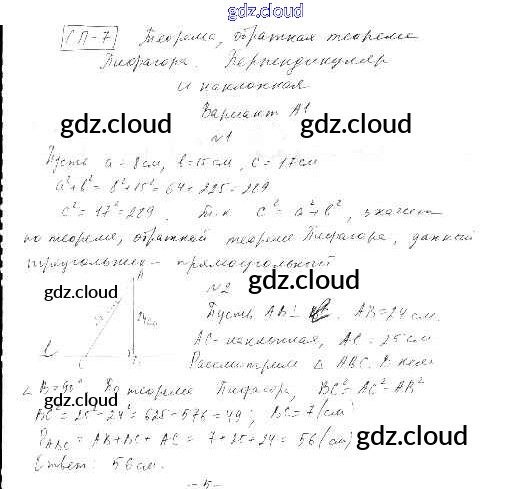 gdz.cloud
СП-7 Теорема, обратная теореме
Пифагора. Перпендикуляр
и наклонная
Вариант А1
gdz.cloud gdz.cloud
№1
Пусть a = 8 см, b = 15 см, c = 17 см
a²+b² = 8²+15² = 64+225 = 289
c² = 17² = 289. Т.к c² = a²+b², значит
по теореме, обратной теореме Пифагора, данный
треугольник – прямоугольный
gdz.cloud gdz.cloud
№2
A
24см
C
Пусть AB ⊥ . AB = 24 см.
AC - наклонная, AC = 25 см
Рассмотрим △ ABC. В нем
∠B = 90° По теореме Пифагора, BC² = AC² - AB²
BC² = 25² - 24² = 625 - 576 = 49; BC = 7 (см)
P ABC = AB + BC + AC = 7 + 25 + 24 = 56 (см)
gdz.cloud gdz.cloud
Ответ: 56 см.
- 5 -